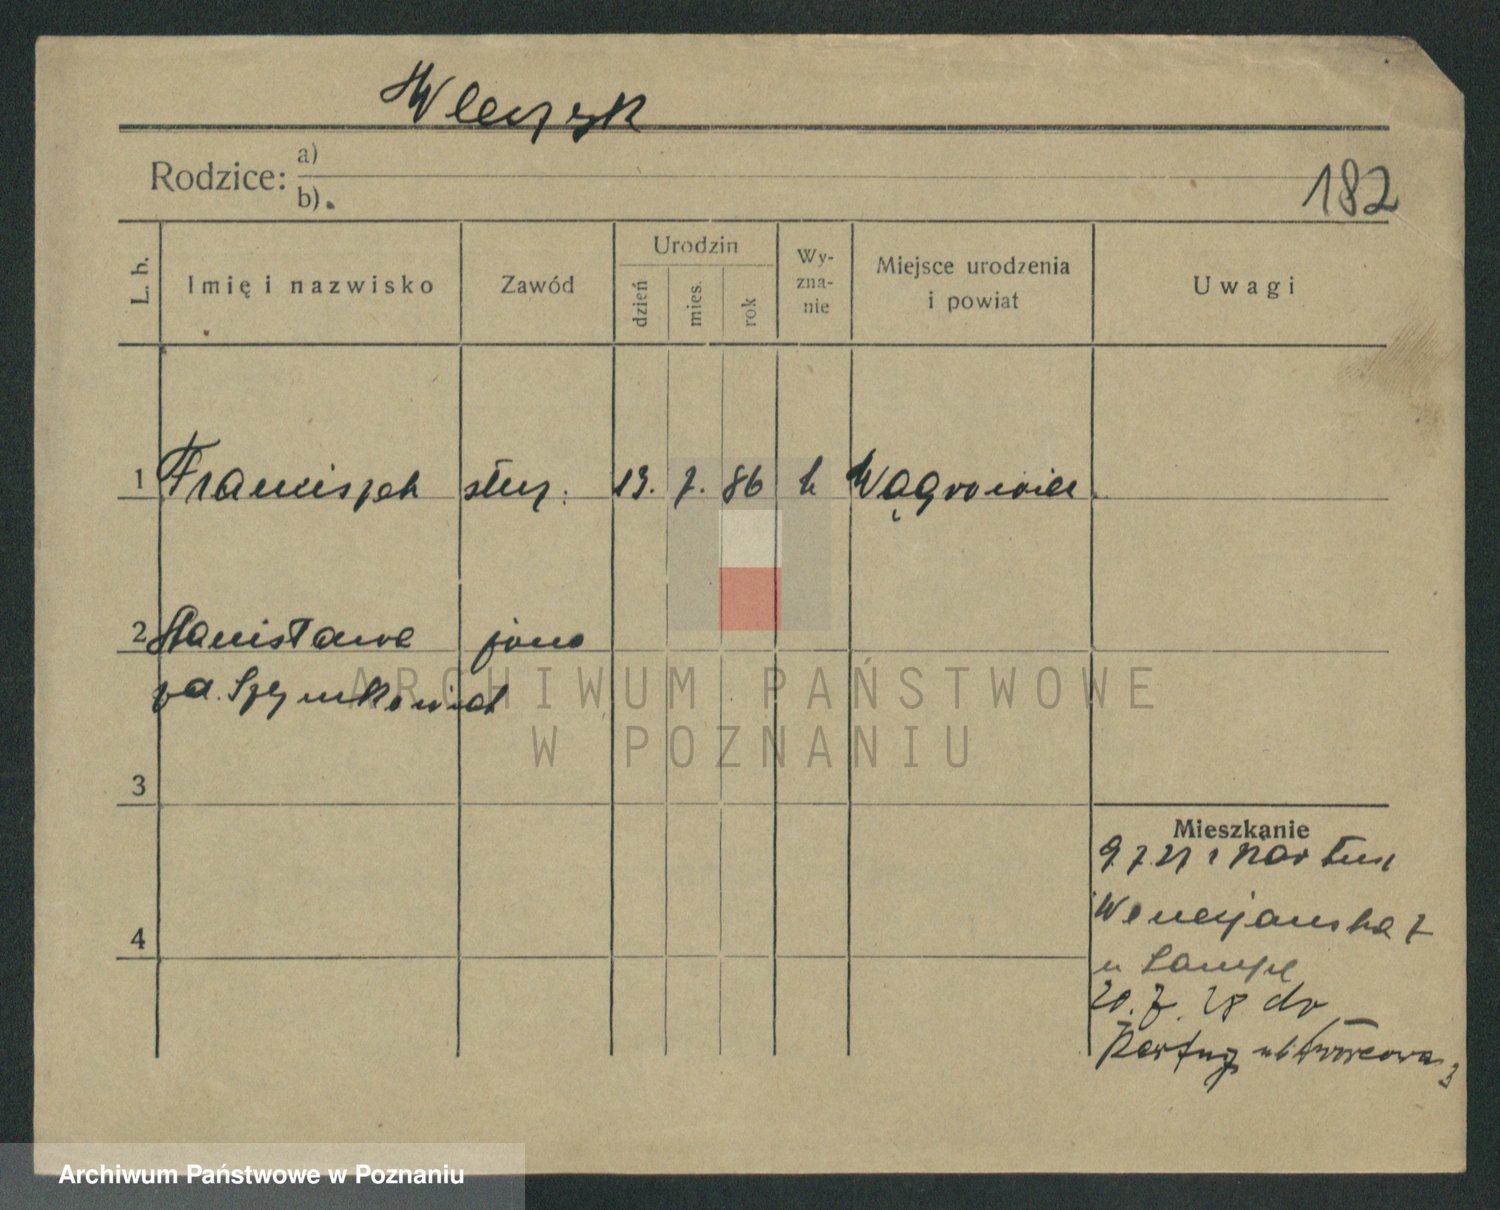 Wleczyk
Rodzice: a)
b)
182
L. b.
Imię i nazwisko
Zawód
Urodzin
dzień
mies.
rok
Wy-
zna-
nie
Miejsce urodzenia
i powiat
Uwagi
1 Franciszek 13. 7. 86 k Wągrowiec
2 Stanisława żona
zd. Szymkowiak
3
4
Mieszkanie
9.7.27 z Kartuz
Wenecjańska 7
u Lampe
20. 7. 28 do
Kartuzy ul. Dworcowa 3
ARCHIWUM PAŃSTWOWE
W POZNANIU
Archiwum Państwowe w Poznaniu